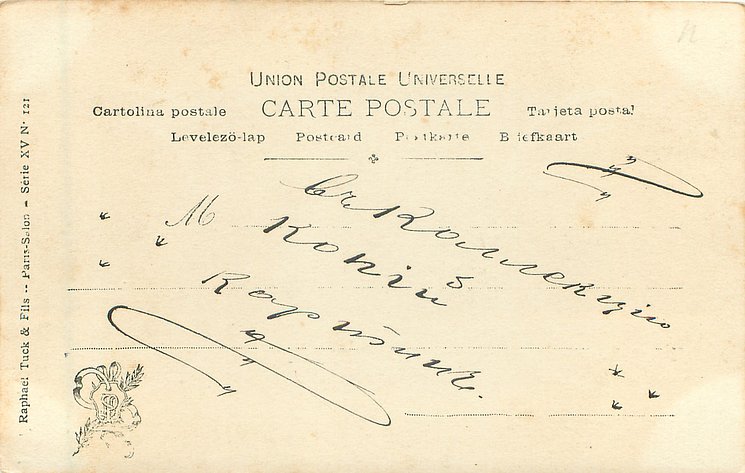 UNION POSTALE UNIVERSELLE
Cartolina postale CARTE POSTALE Tarjeta postal
Levelező-lap Postcard Postkarte Briefkaart
M
Въ Коллекцію
Копій
Картинъ.
Raphael Tuck & Fils -- Paris-Salon - Série XV N° 121